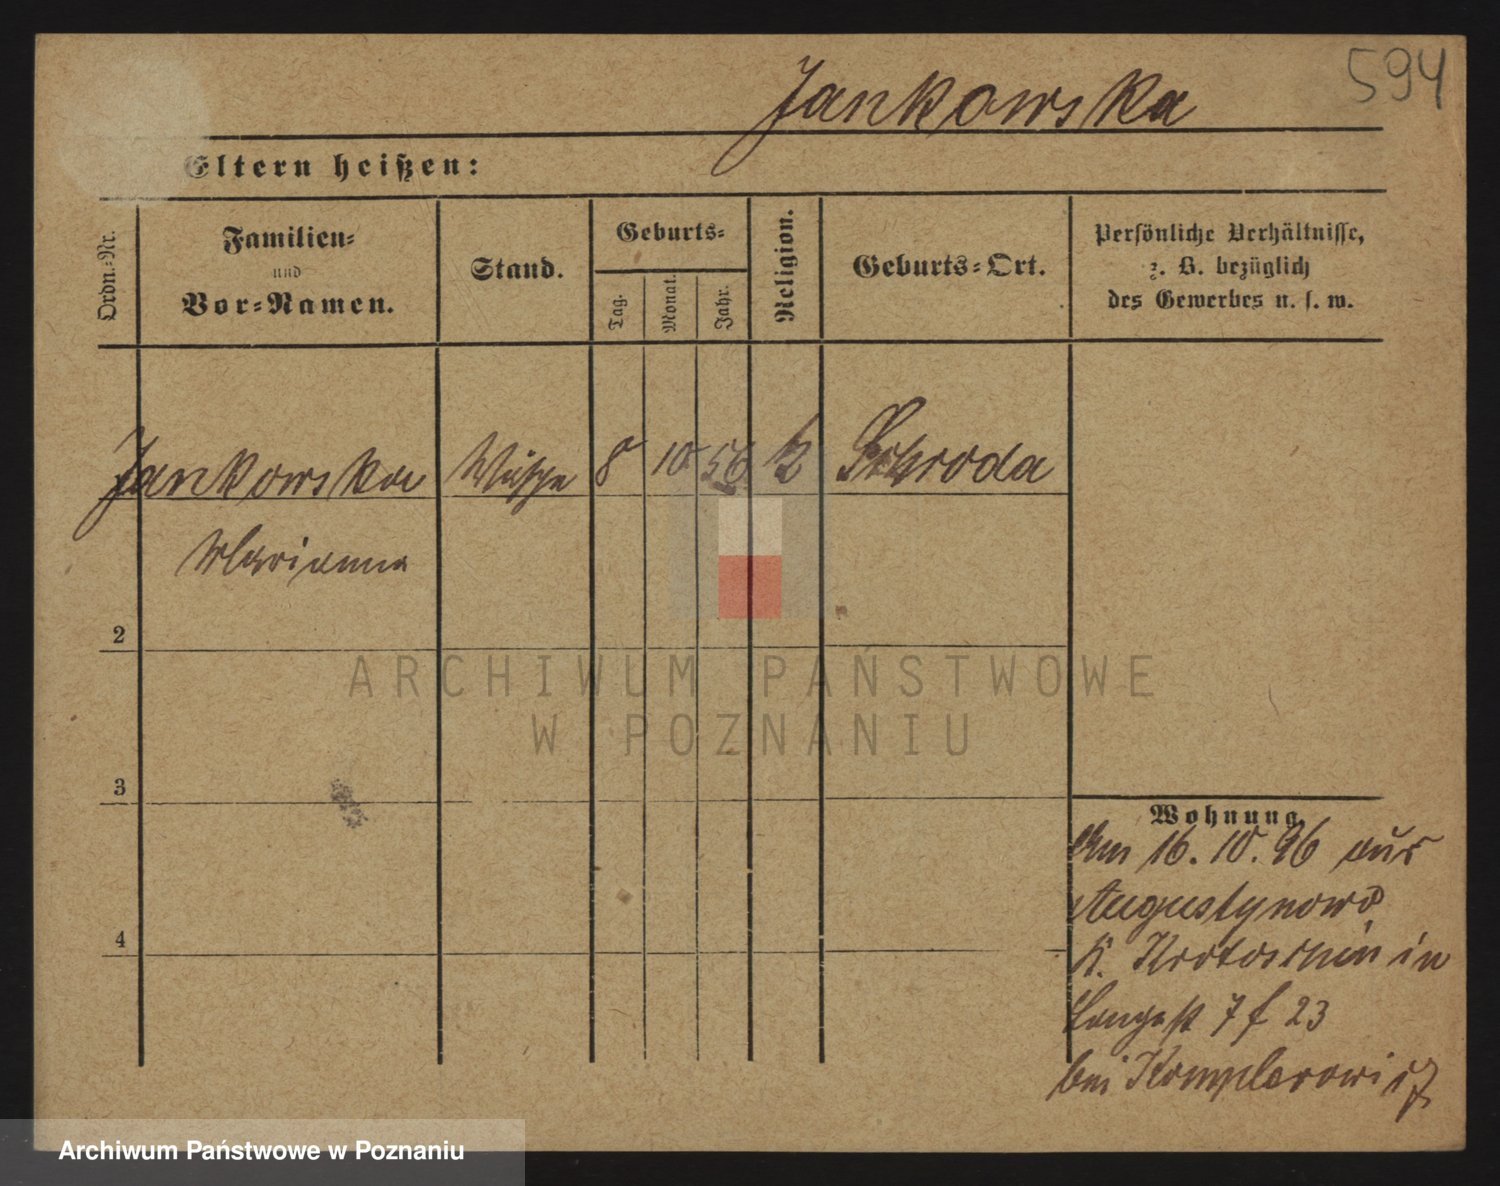 594
Jankowska
Eltern heißen:
Ordn.-Nr.
Familien-
und
Vor-Namen.
Stand.
Geburts-
Tag.
Monat.
Jahr.
Religion.
Geburts-Ort.
Persönliche Verhältnisse,
z. B. bezüglich
des Gewerbes u. s. w.
Jankowska 8 10 56 k Schroda
Marianna
2
3
4
Wohnung.
Am 16. 10. 96 aus
Augustynowo
K. Krotoschin in
Langestr 7 f 23
bei
ARCHIWUM PAŃSTWOWE
W POZNANIU
Archiwum Państwowe w Poznaniu